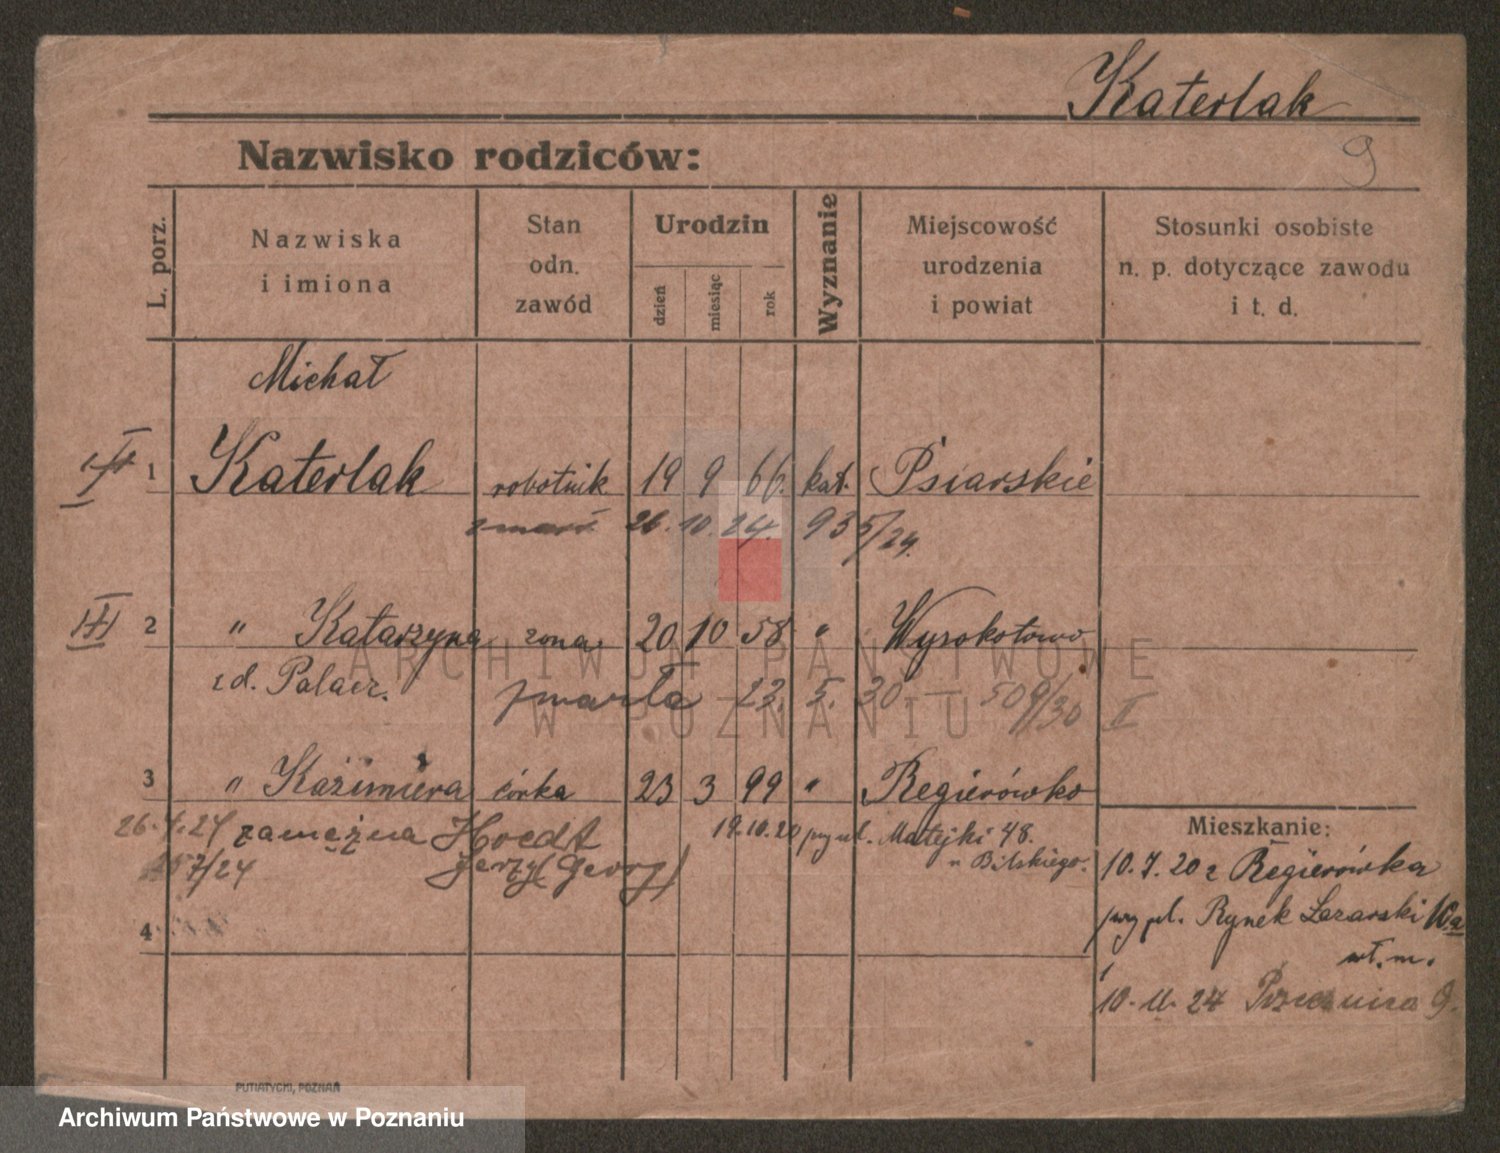 Katerlak
9
Nazwisko rodziców:
L. porz.
Nazwiska
i imiona
Stan
odn.
zawód
Urodzin
dzień
miesiąc
rok
Wyznanie
Miejscowość
urodzenia
i powiat
Stosunki osobiste
n. p. dotyczące zawodu
i t. d.
Michał
1 Katerlak robotnik 19 9 66. kat. Psiarskie
zmarł 26. 10. 24. 935/24.
2 " Katarzyna żona 20 10 58 " Wysokotowo
z d. Palacz. zmarła 23. 5. 30 — 509/30 II
3 " Kaźimiera córka 23 3 99 " Regierówko
26. 4. 24 zamężna Hoedt 19.10.20 przy ul. Matejki 48.
7/24 Jerzy (Georg) u Bilskiego.
4
Mieszkanie:
10. 7. 20 z Regierówka
przy pl. Rynek Lazarski 16a
wł. m.
10. 11. 24 9.
PUTIATYCKI, POZNAŃ
ARCHIWUM PAŃSTWOWE
W POZNANIU
Archiwum Państwowe w Poznaniu